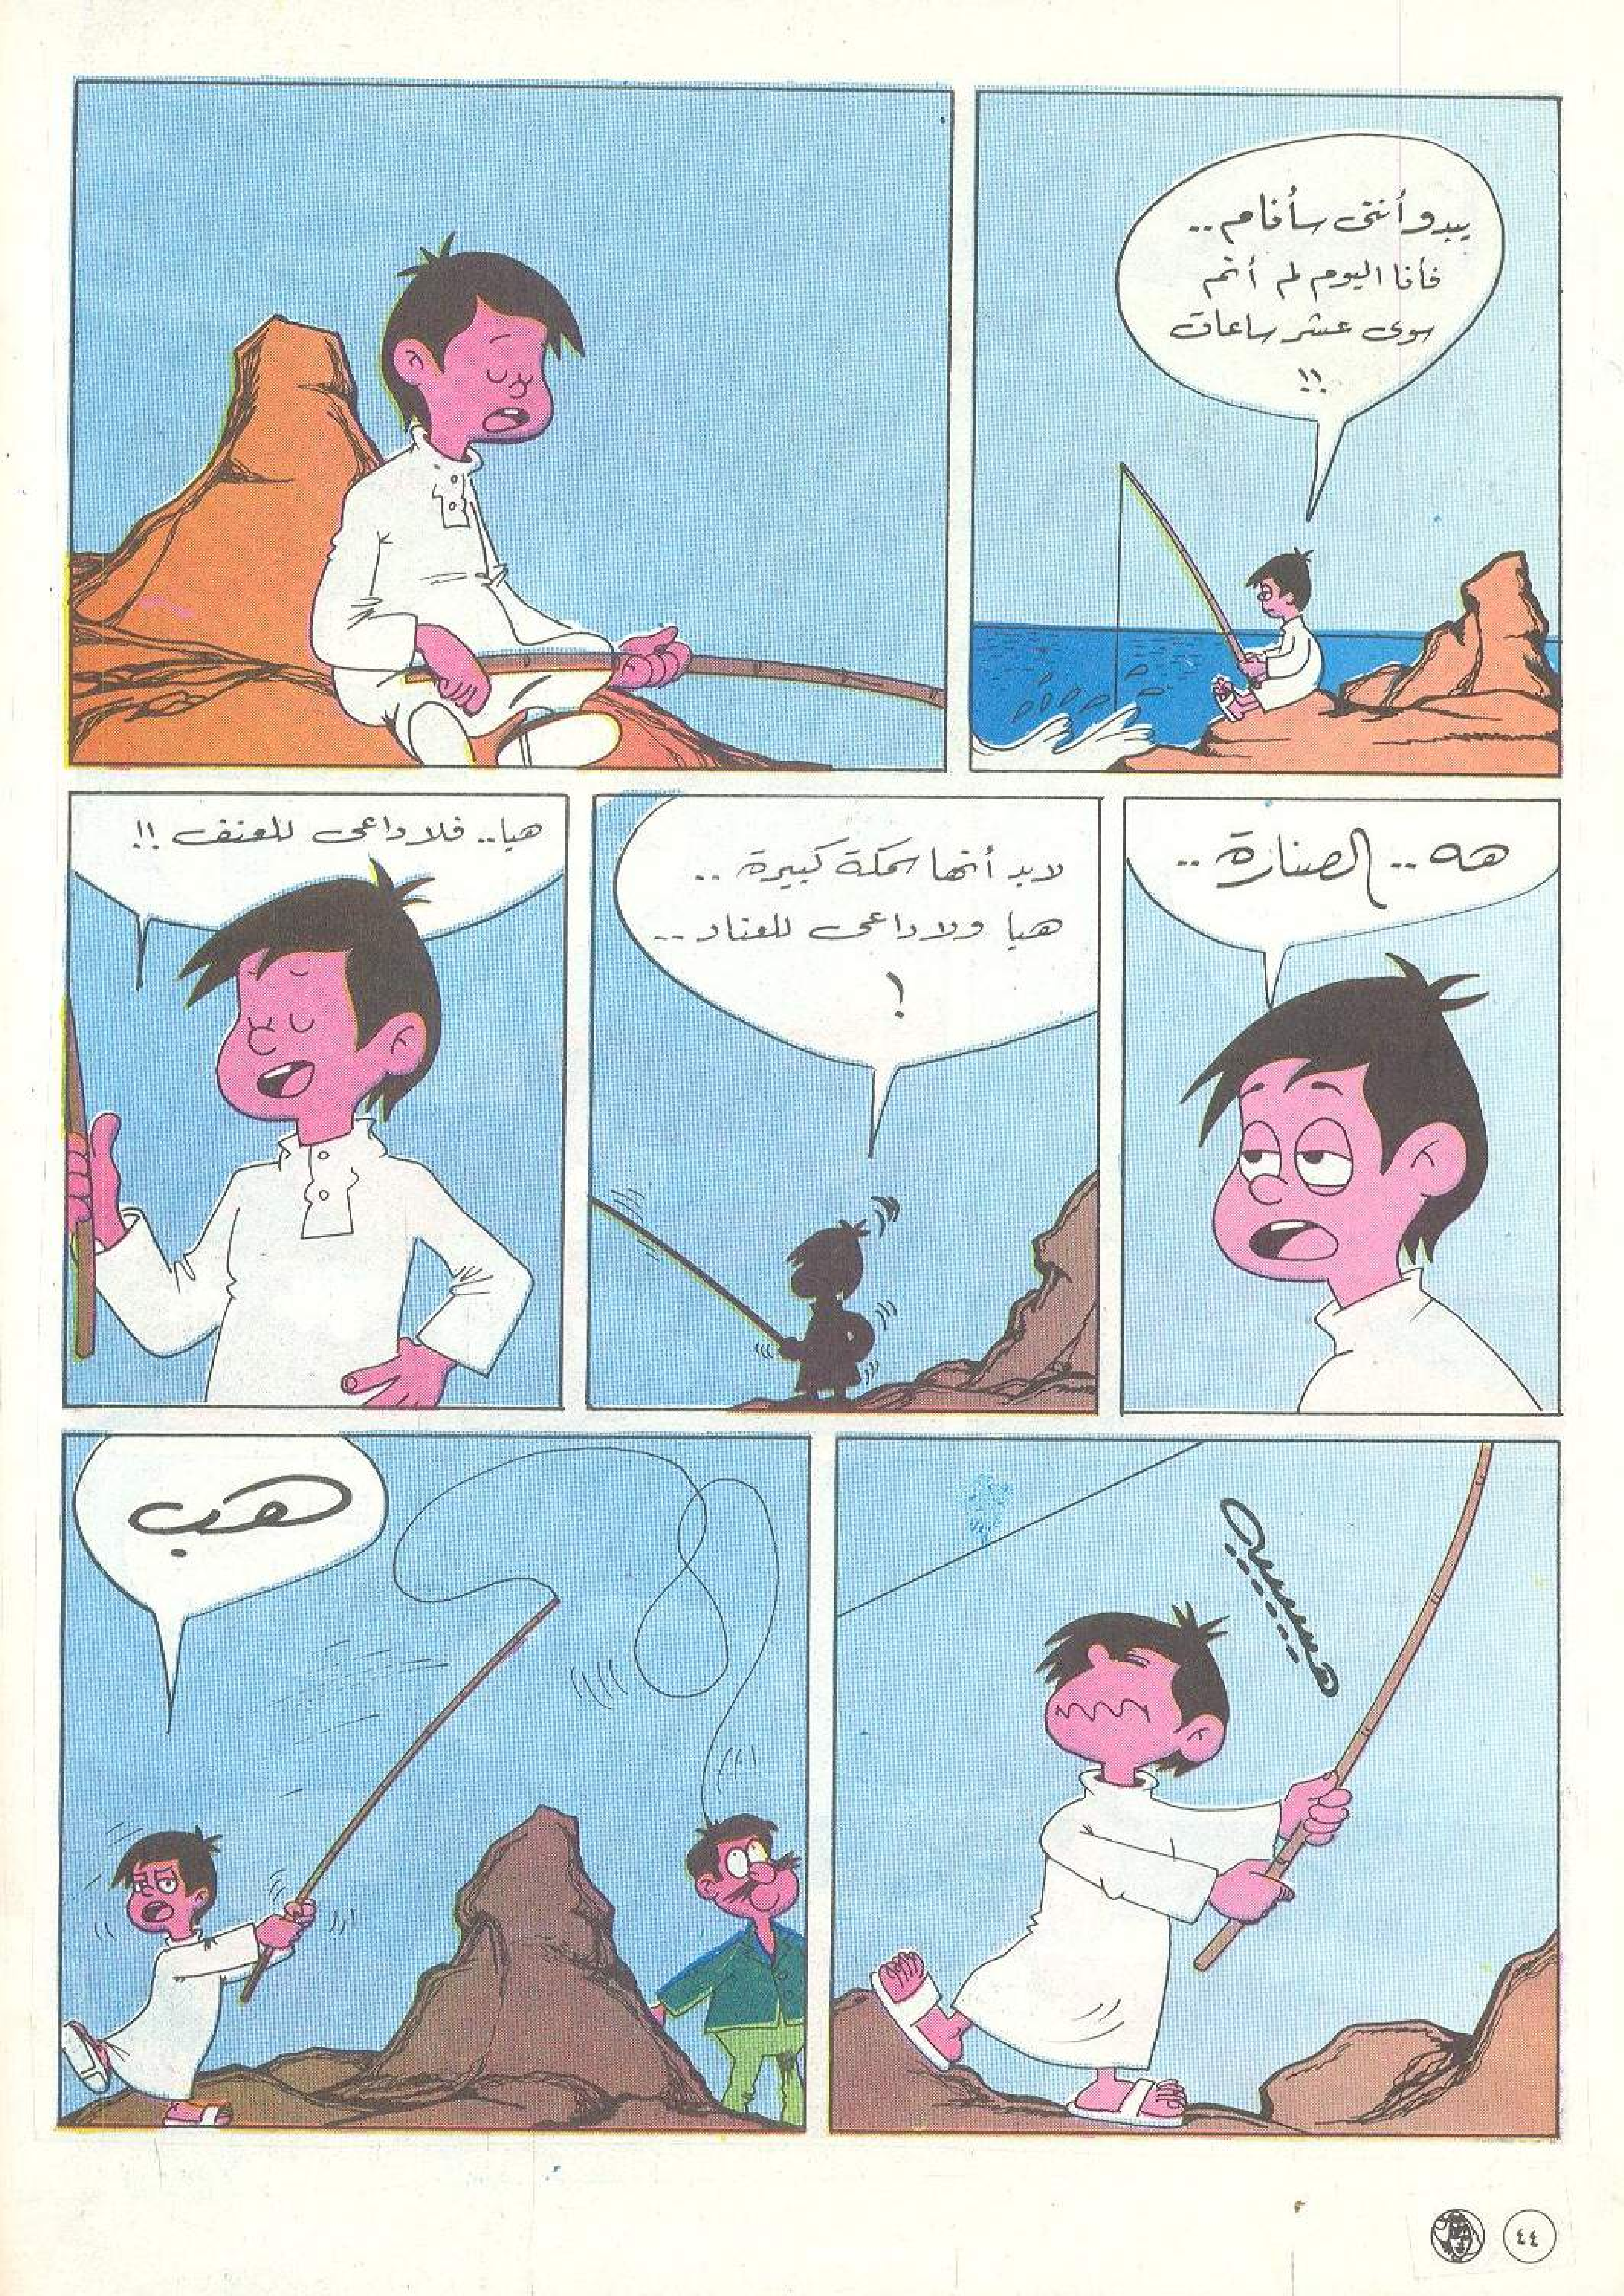 يبدو أنني سأنام..
فأنا اليوم لم أنم
سوى عشر ساعات
!!
هه.. الصنارة..
لابد أنها سمكة كبيرة..
هيا ولا داعي للعناد..
!
هيا.. فلا داعي للعنف!!
هيييييه
هب
٤٤